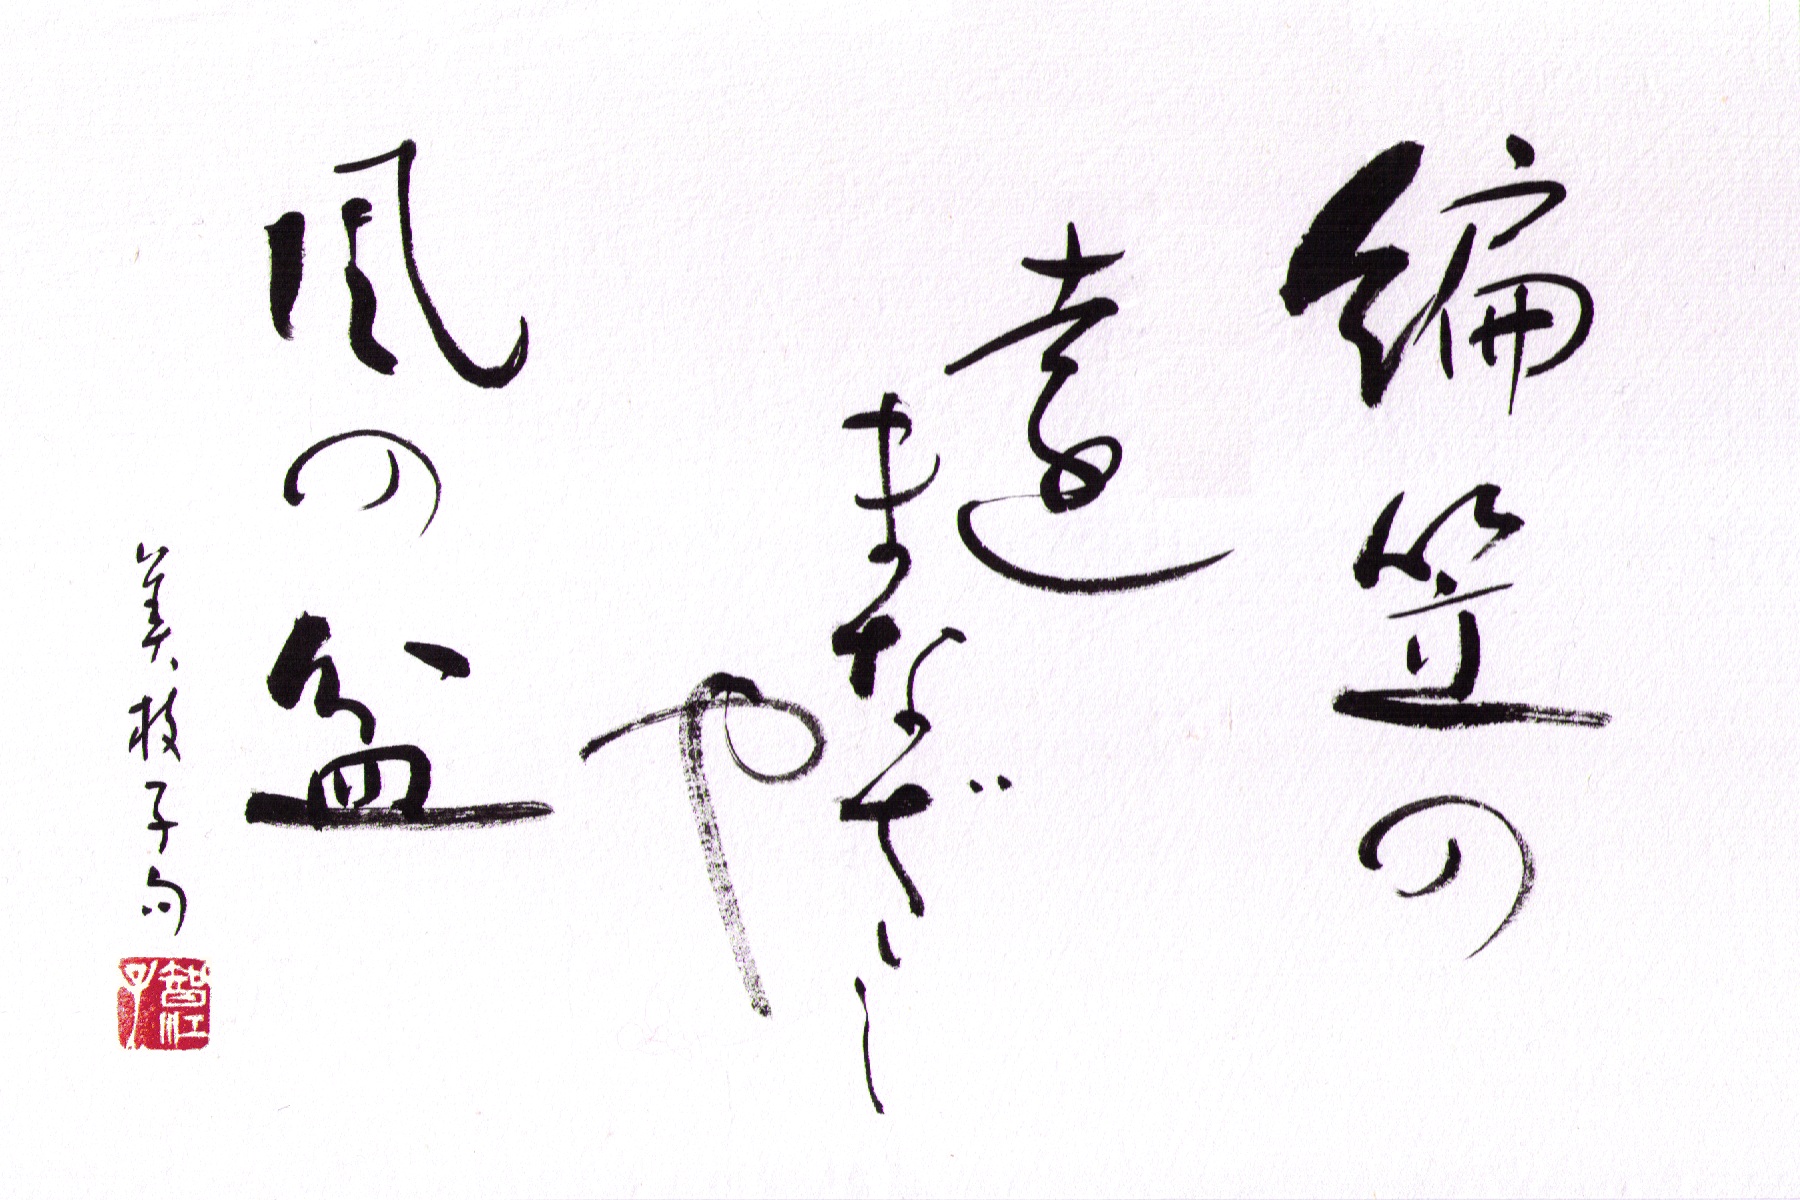 編笠の
遠
まなざし
や
風の盆
美枝子句
智江子